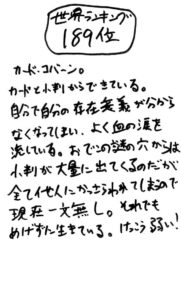 世界ランキング
189位
カード・コバーン。
カードと小判からできている。
自分で自分の存在無義が分から
なくなってしまい、よく血の涙を
流している。おでこの謎の穴からは
小判が大量に出てくるのだが
全て他人にかっさらわれてしまうので
現在一文無し。それでも
めげずに生きている。けっこう弱い!